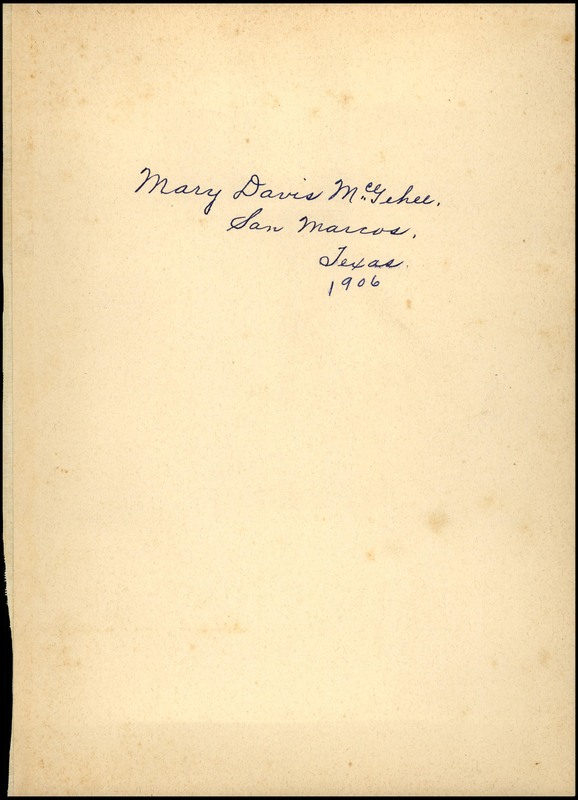 Mary Davis McGehee.
San Marcos,
Texas.
1906